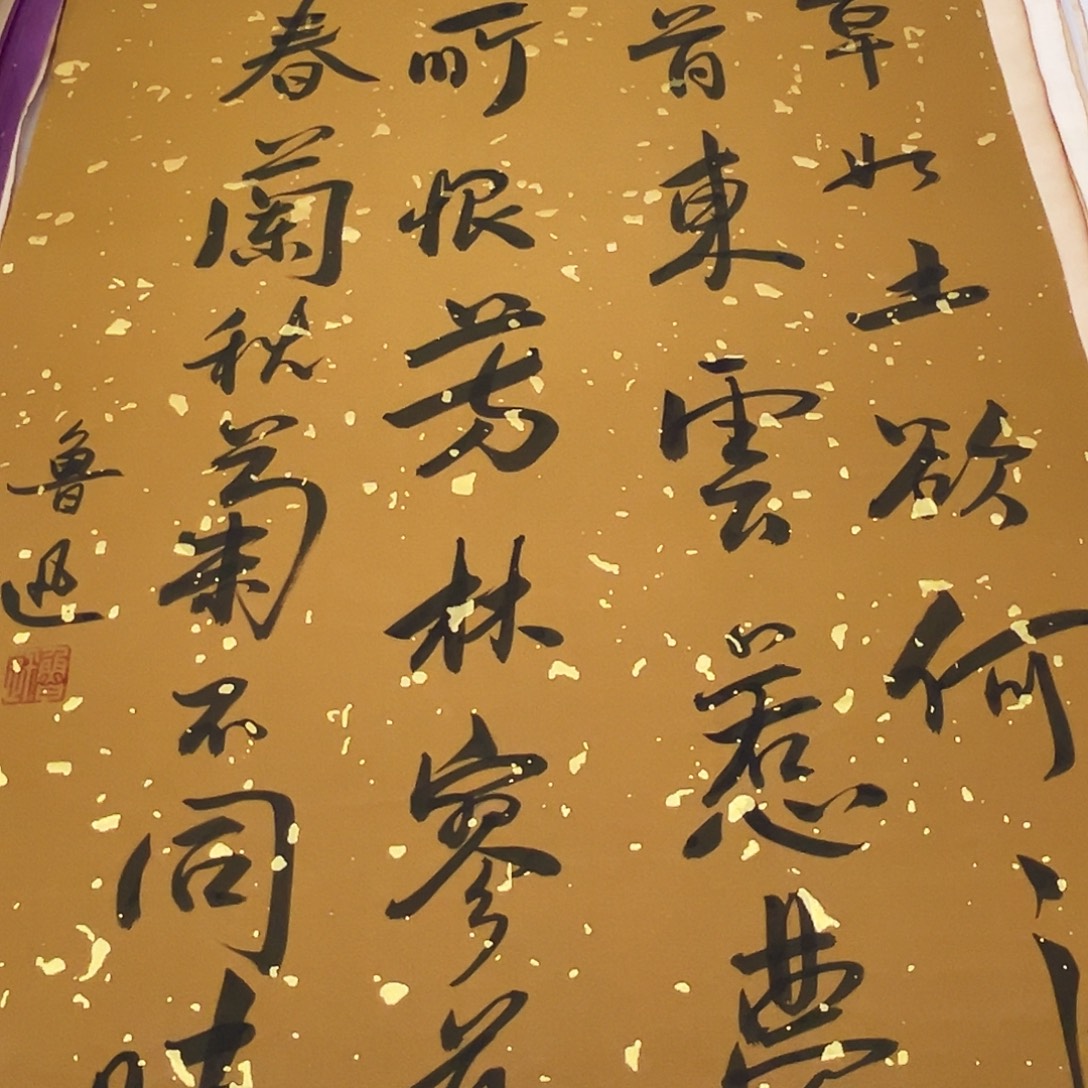 章如土欲何
首東雲惹夢
所恨芳林寥
春蘭秋菊不同時
魯迅